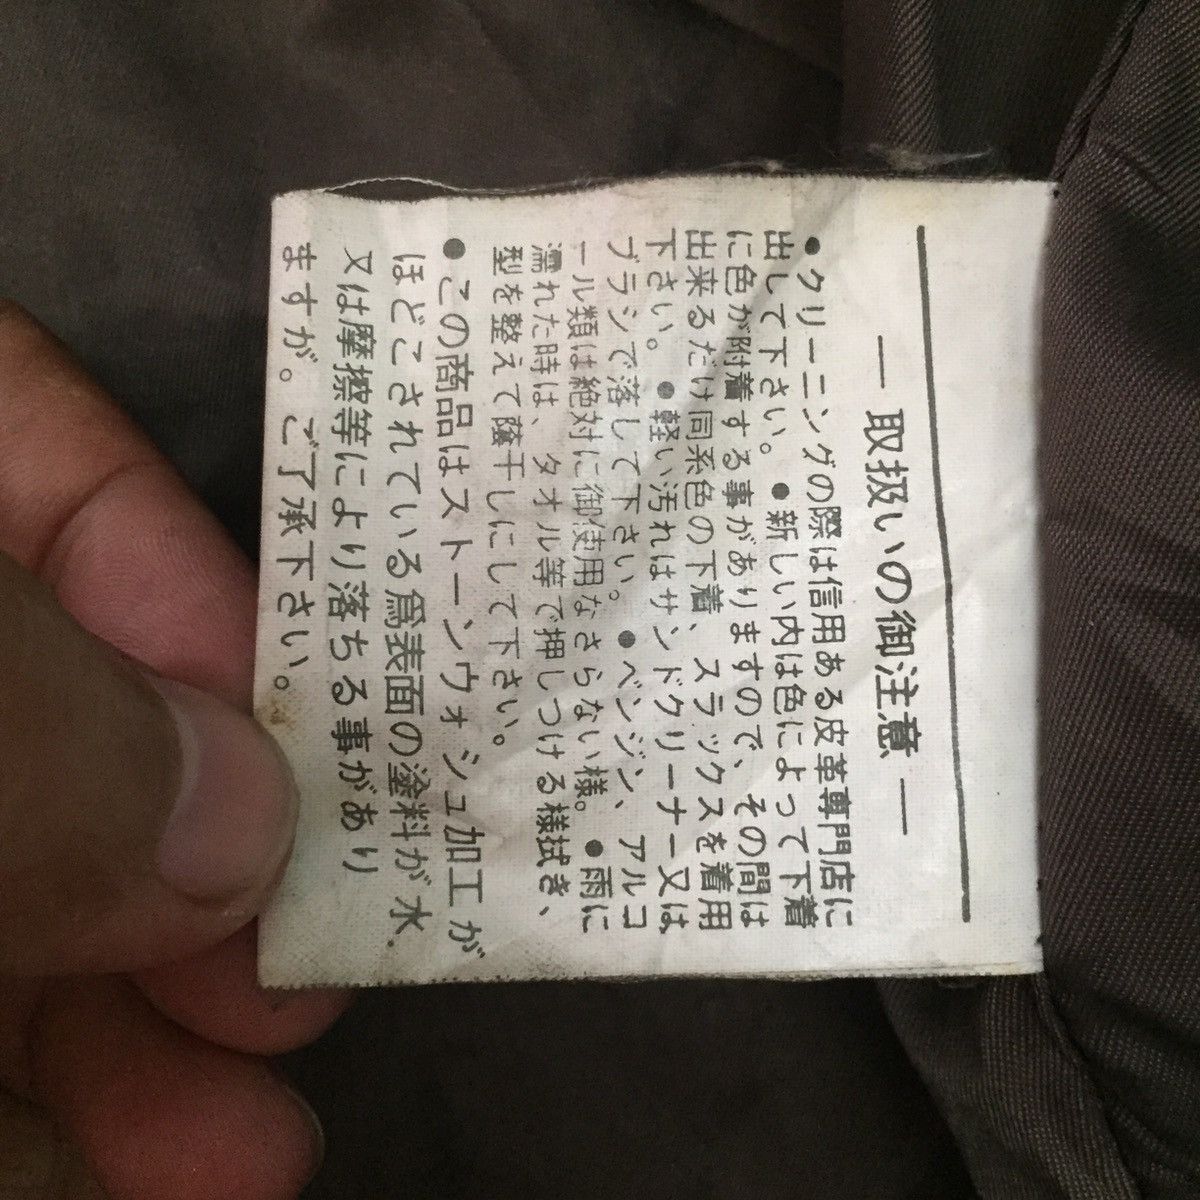 ― 取扱いの御注意 ―
●クリーニングの際は信用ある皮革専門店に
出して下さい。●新しい内は色によって下着
に色が附着する事がありますので、その間は
出来るだけ同系色の下着、スラックスを着用
下さい。●軽い汚れはサンドクリーナー又は
ブラシで落して下さい。●ベンジン、アルコ
ール類は絶対に御使用なさらない様。●雨に
濡れた時は、タオル等で押しつける様拭き、
型を整えて蔭干しにして下さい。
●この商品はストーンウォシュ加工が
ほどこされている爲表面の塗料が水.
又は摩擦等により落ちる事があり
ますが。ご了承下さい。